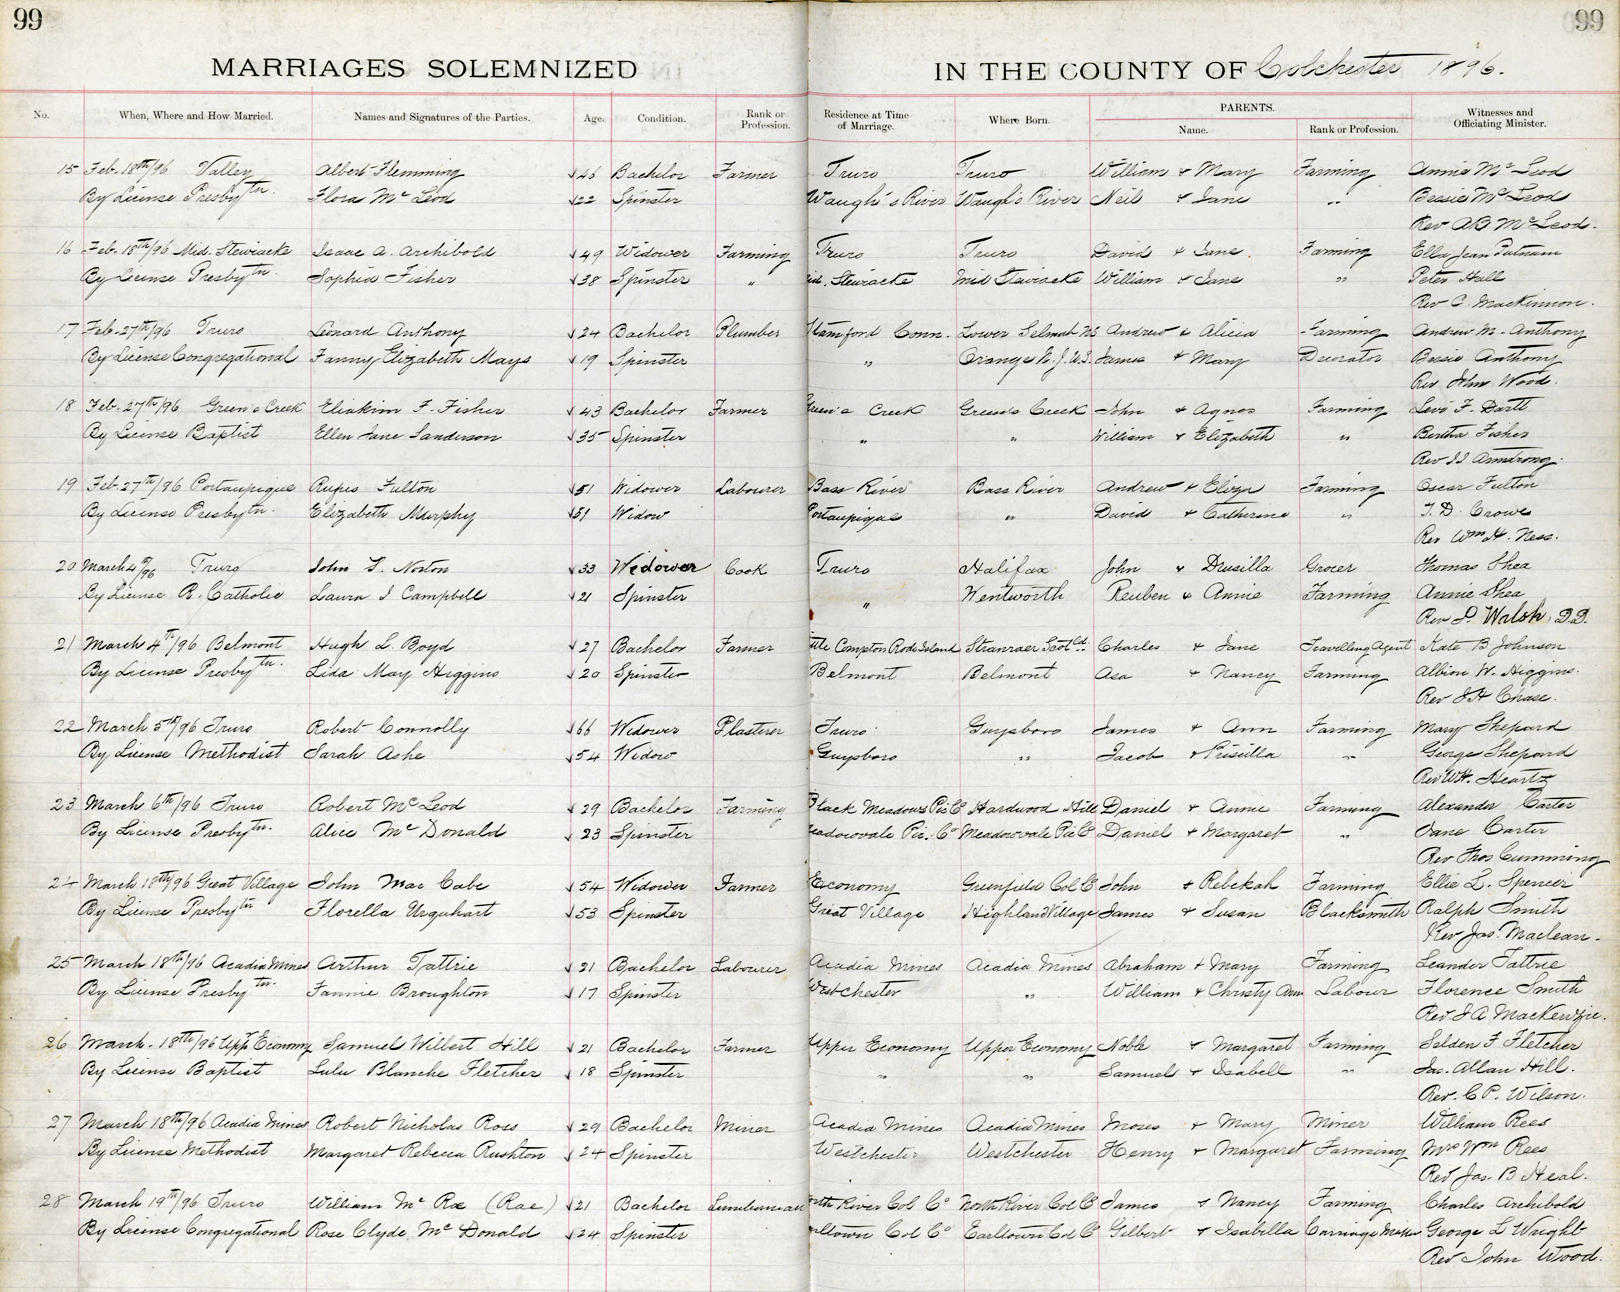 99 99
MARRIAGES SOLEMNIZED IN THE COUNTY OF Colchester 1896.
No. When, Where and How Married. Names and Signatures of the Parties. Age. Condition. Rank or Profession. Residence at Time of Marriage. Where Born. PARENTS. Name. Rank or Profession. Witnesses and Officiating Minister.
15 Feb. 18th/96 Valley Albert Flemming 45 Bachelor Farmer Truro Truro William & Mary Farming Annie Mc Leod
By License Presbytn. Flora Mc Leod 22 Spinster Waugh's River Waugh's River Neil & Jane " Bessie Mc Leod
Rev A B McLeod.
16 Feb. 18th/96 Mid. Stewiacke Isaac A. Archibold 49 Widower Farming Truro Truro David & Jane Farming Ella Jean Putnam
By License Presbytn. Sophia Fisher 38 Spinster " Mid. Stewiacke Mid Stewiacke William & Jane " Peter Hall
Rev C. Mackinnon.
17 Feb. 27th/96 Truro Lenard Anthony 24 Bachelor Plumber Stamford Conn. Lower Selmah NS Andrew & Alicia Farming Andrew M. Anthony
By License Congregational Fanny Elizabeth Mays 19 Spinster " Orange N.J. U.S. James & Mary Decorator Bessie Anthony
Rev John Wood.
18 Feb. 27th/96 Green's Creek Eliakim F. Fisher 43 Bachelor Farmer Green's Creek Green's Creek John & Agnes Farming Levi F. Dartt
By License Baptist Ellen Jane Sanderson 35 Spinster " " William & Elizabeth " Bertha Fisher
Rev J J Armstrong.
19 Feb. 27th/96 Portaupique Rufus Fulton 51 Widower Labourer Bass River Bass River Andrew & Eliza Farming Oscar Fulton
By License Presbytn. Elizabeth Murphy 51 Widow Portaupique " David & Catherine " T. D. Crowe
Rev Wm H. Ness.
20 March 4th/96 Truro John S. Norton 33 Widower Cook Truro Halifax John & Drusilla Grocer Thomas Shea
By License R. Catholic Laura I Campbell 21 Spinster " Wentworth Reuben & Annie Farming Annie Shea
Rev P. Walsh, D.D.
21 March 4th/96 Belmont Hugh L Boyd 27 Bachelor Farmer ttle Compton Rode Island Stranraer Scotld. Charles & Jane Travelling Agent Kate B Johnson
By License Presbytn. Lida May Higgins 20 Spinster Belmont Belmont Asa & Nancy Farming Albion W. Higgins.
Rev J H Chase.
22 March 5th/96 Truro Robert Connolly 66 Widower Plasterer Truro Guysboro James & Ann Farming Mary Shepard
By License Methodist Sarah Ashe 54 Widow Guysboro " Jacob & Priscilla " George Shepard
Rev W.H. Heartz
23 March 6th/96 Truro Robert Mc Leod 29 Bachelor Farming Black Meadows Pic Co Hardwood Hill Daniel & Annie Farming Alexander Carter
By License Presbytn. Alice Mc Donald 23 Spinster eadowvale Pic. Co Meadowvale Pic Co Daniel & Margaret " Jane Carter
Rev Thos Cumming
24 March 18th/96 Great Village John Mac Cabe 54 Widower Farmer Economy Greenfield Col Co John & Rebekah Farming Ellie L. Spencer
By License Presbytn Florella Urquhart 53 Spinster Great Village Highland Village James & Susan Blacksmith Ralph Smith
Rev Jas. Maclean.
25 March 18th/96 Acadia Mines Arthur Tattrie 21 Bachelor Labourer Acadia Mines Acadia Mines Abraham & Mary Farming Leander Tattrie
By License Presbytn. Fannie Broughton 17 Spinster Westchester " William & Christy Ann Labour Florence Smith
Rev J A Mackenzie.
26 March. 18th/96 Uppr Economy Samuel Wilbert Hill 21 Bachelor Farmer Upper Economy Upper Economy Noble & Margaret Farming Selden F Fletcher
By License Baptist Lulu Blanche Fletcher 18 Spinster " " Samuel & Isabell " Jas. Allan Hill.
Rev. C P. Wilson.
27 March 18th/96 Acadia Mines Robert Nicholas Ross 29 Bachelor Miner Acadia Mines Acadia Mines Moses & Mary Miner William Rees
By License Methodist Margaret Rebecca Rushton 24 Spinster Westchester Westchester Henry & Margaret Farming Mrs Wm Rees
Rev Jas. B Heal.
28 March 19th/96 Truro William Mc Rae (Rae) 21 Bachelor Lumberman orth River Col Co North River Col Co James & Nancy Farming Charles Archibold
By License Congregational Rose Clyde Mc Donald 24 Spinster arltown Col Co Earltown Col Co Gilbert & Isabella Carriage Maker George L Wright
Rev John Wood.